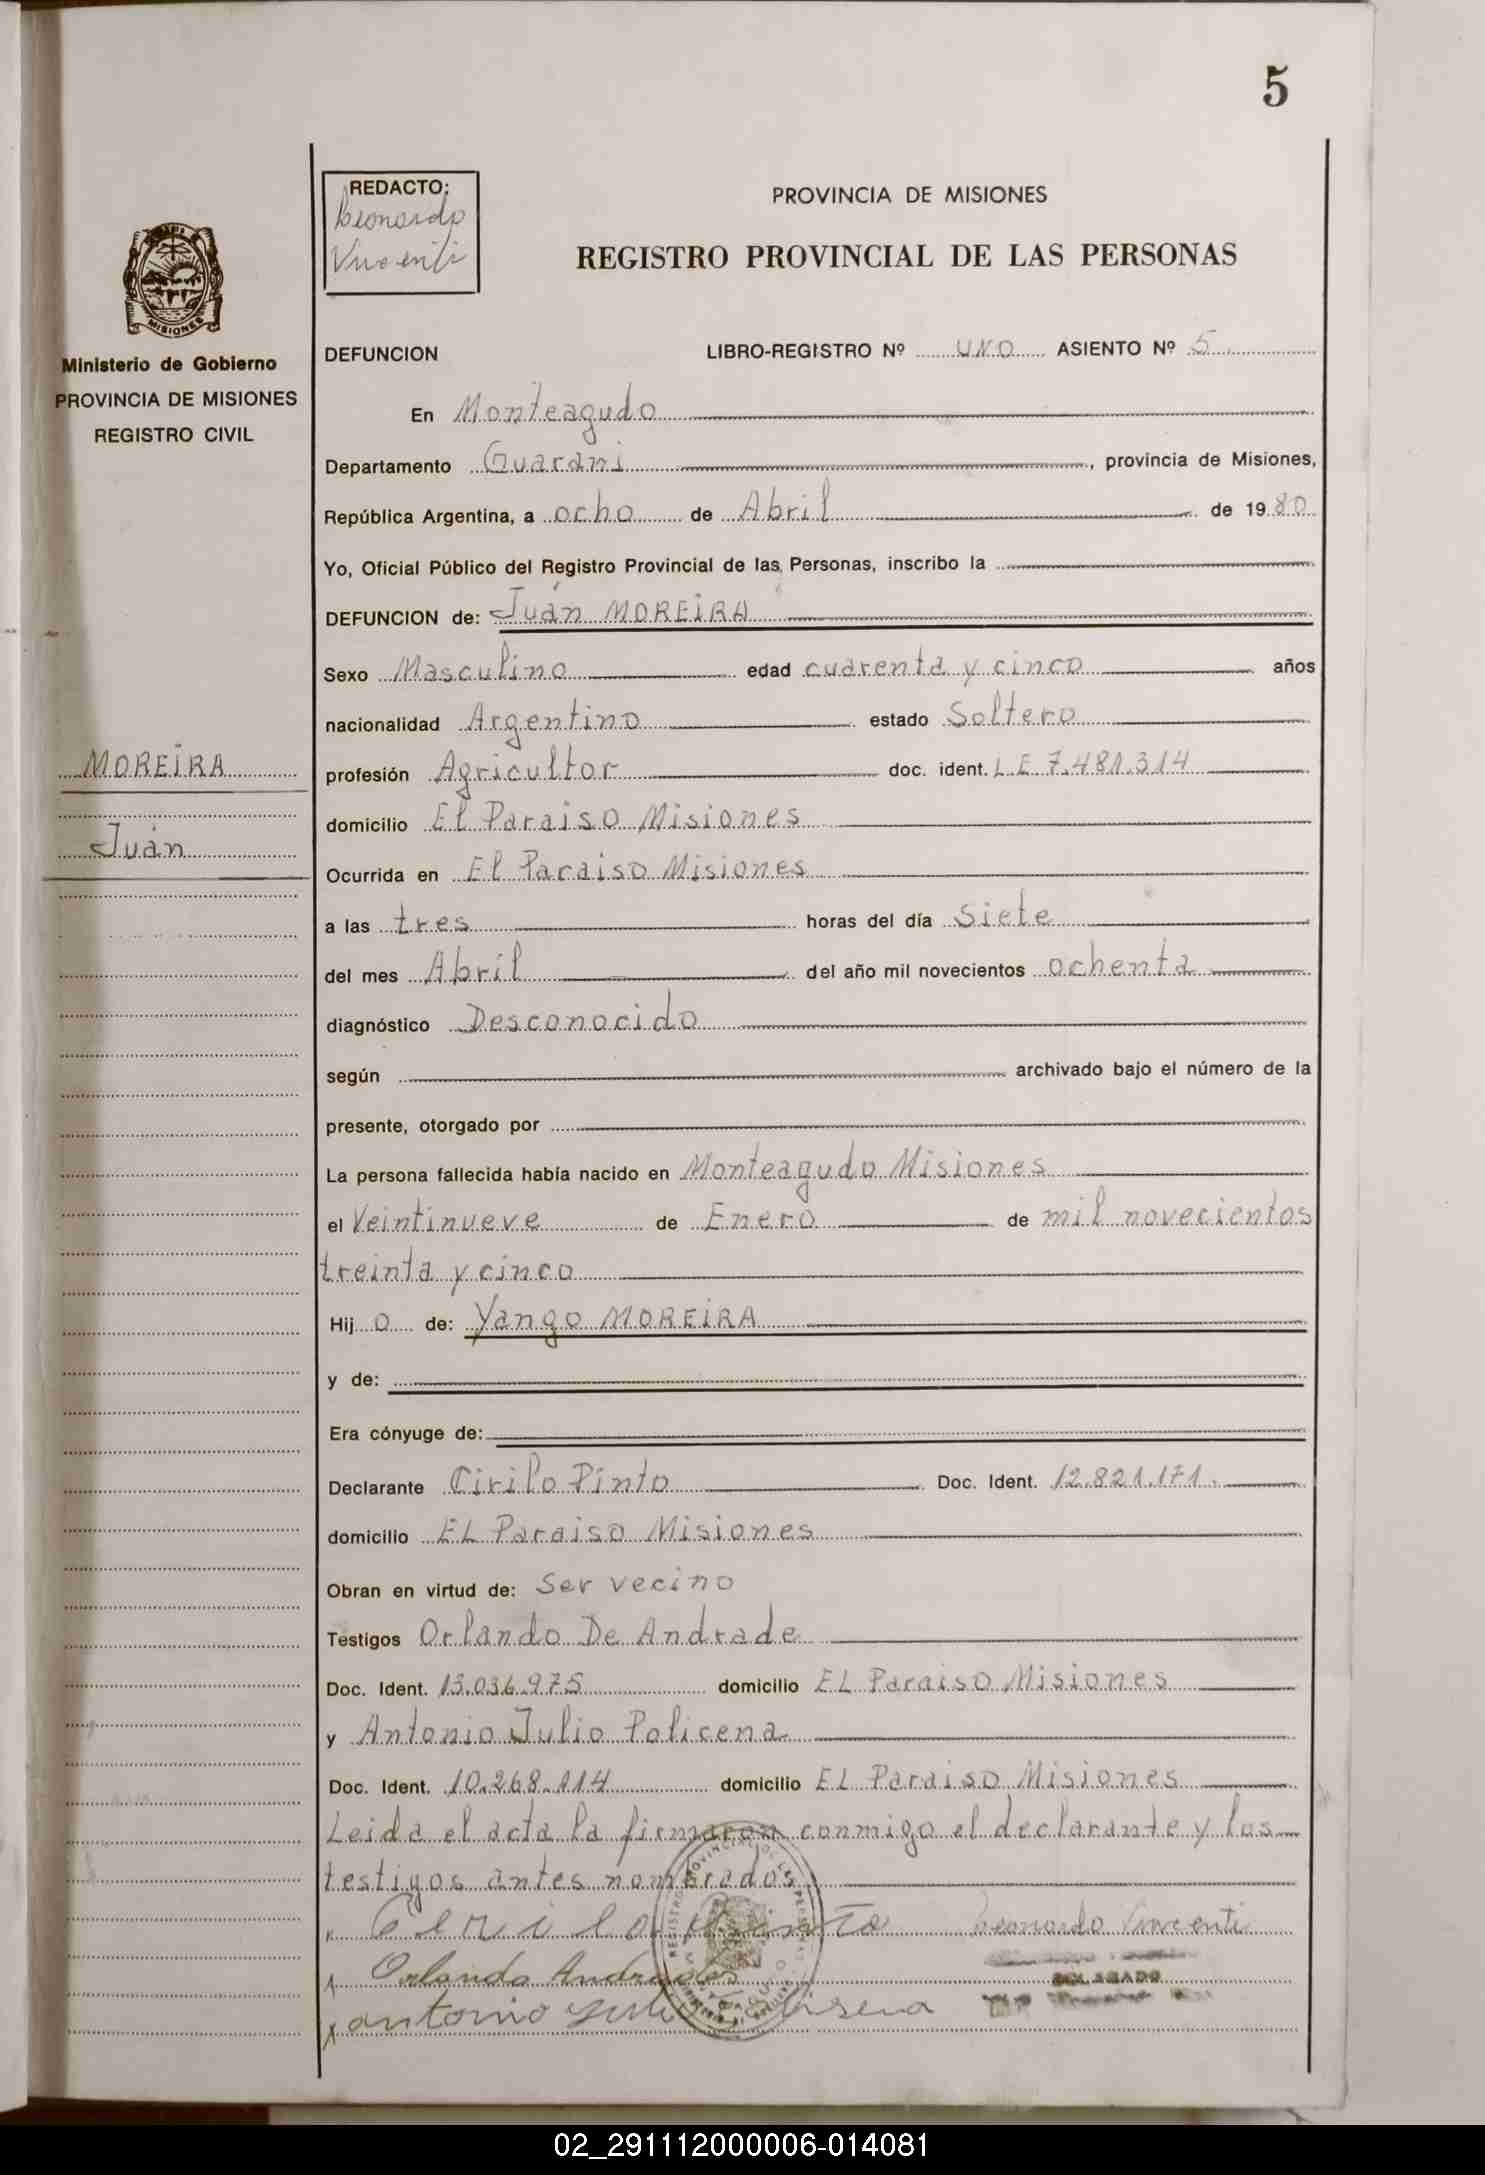 5
REDACTO:
Leonardo
Vincenti
PROVINCIA DE MISIONES
REGISTRO PROVINCIAL DE LAS PERSONAS
MISIONES
Ministerio de Gobierno
PROVINCIA DE MISIONES
REGISTRO CIVIL
MOREIRA
Juán
DEFUNCION LIBRO-REGISTRO Nº UNO ASIENTO Nº 5
En Monteagudo
Departamento Guarani, provincia de Misiones,
República Argentina, a ocho de Abril de 1980
Yo, Oficial Público del Registro Provincial de las Personas, inscribo la
DEFUNCION de: Juán MOREIRA
Sexo Masculino edad cuarenta y cinco años
nacionalidad Argentino estado Soltero
profesión Agricultor doc. ident. L.E 7.481.314
domicilio El Paraiso Misiones
Ocurrida en El Paraiso Misiones
a las tres horas del día siete
del mes Abril del año mil novecientos ochenta
diagnóstico Desconocido
según archivado bajo el número de la
presente, otorgado por
La persona fallecida había nacido en Monteagudo Misiones
el Veintinueve de Enero de mil novecientos
treinta y cinco
Hijo de: Yango MOREIRA
y de:
Era cónyuge de:
Declarante Cirilo Pinto Doc. Ident. 12.821.171.
domicilio EL Paraiso Misiones
Obran en virtud de: Ser vecino
Testigos Orlando De Andrade
Doc. Ident. 13.036.975 domicilio EL Paraiso Misiones
y Antonio Julio Policena
Doc. Ident. 10.268.114 domicilio EL Paraiso Misiones
Leida el acta la firmaron conmigo el declarante y los
testigos antes nombrados
Cirilo Pinto Leonardo Vincenti
Orlando Andrade
DELEGADO
antonio Julio
02_291112000006-014081